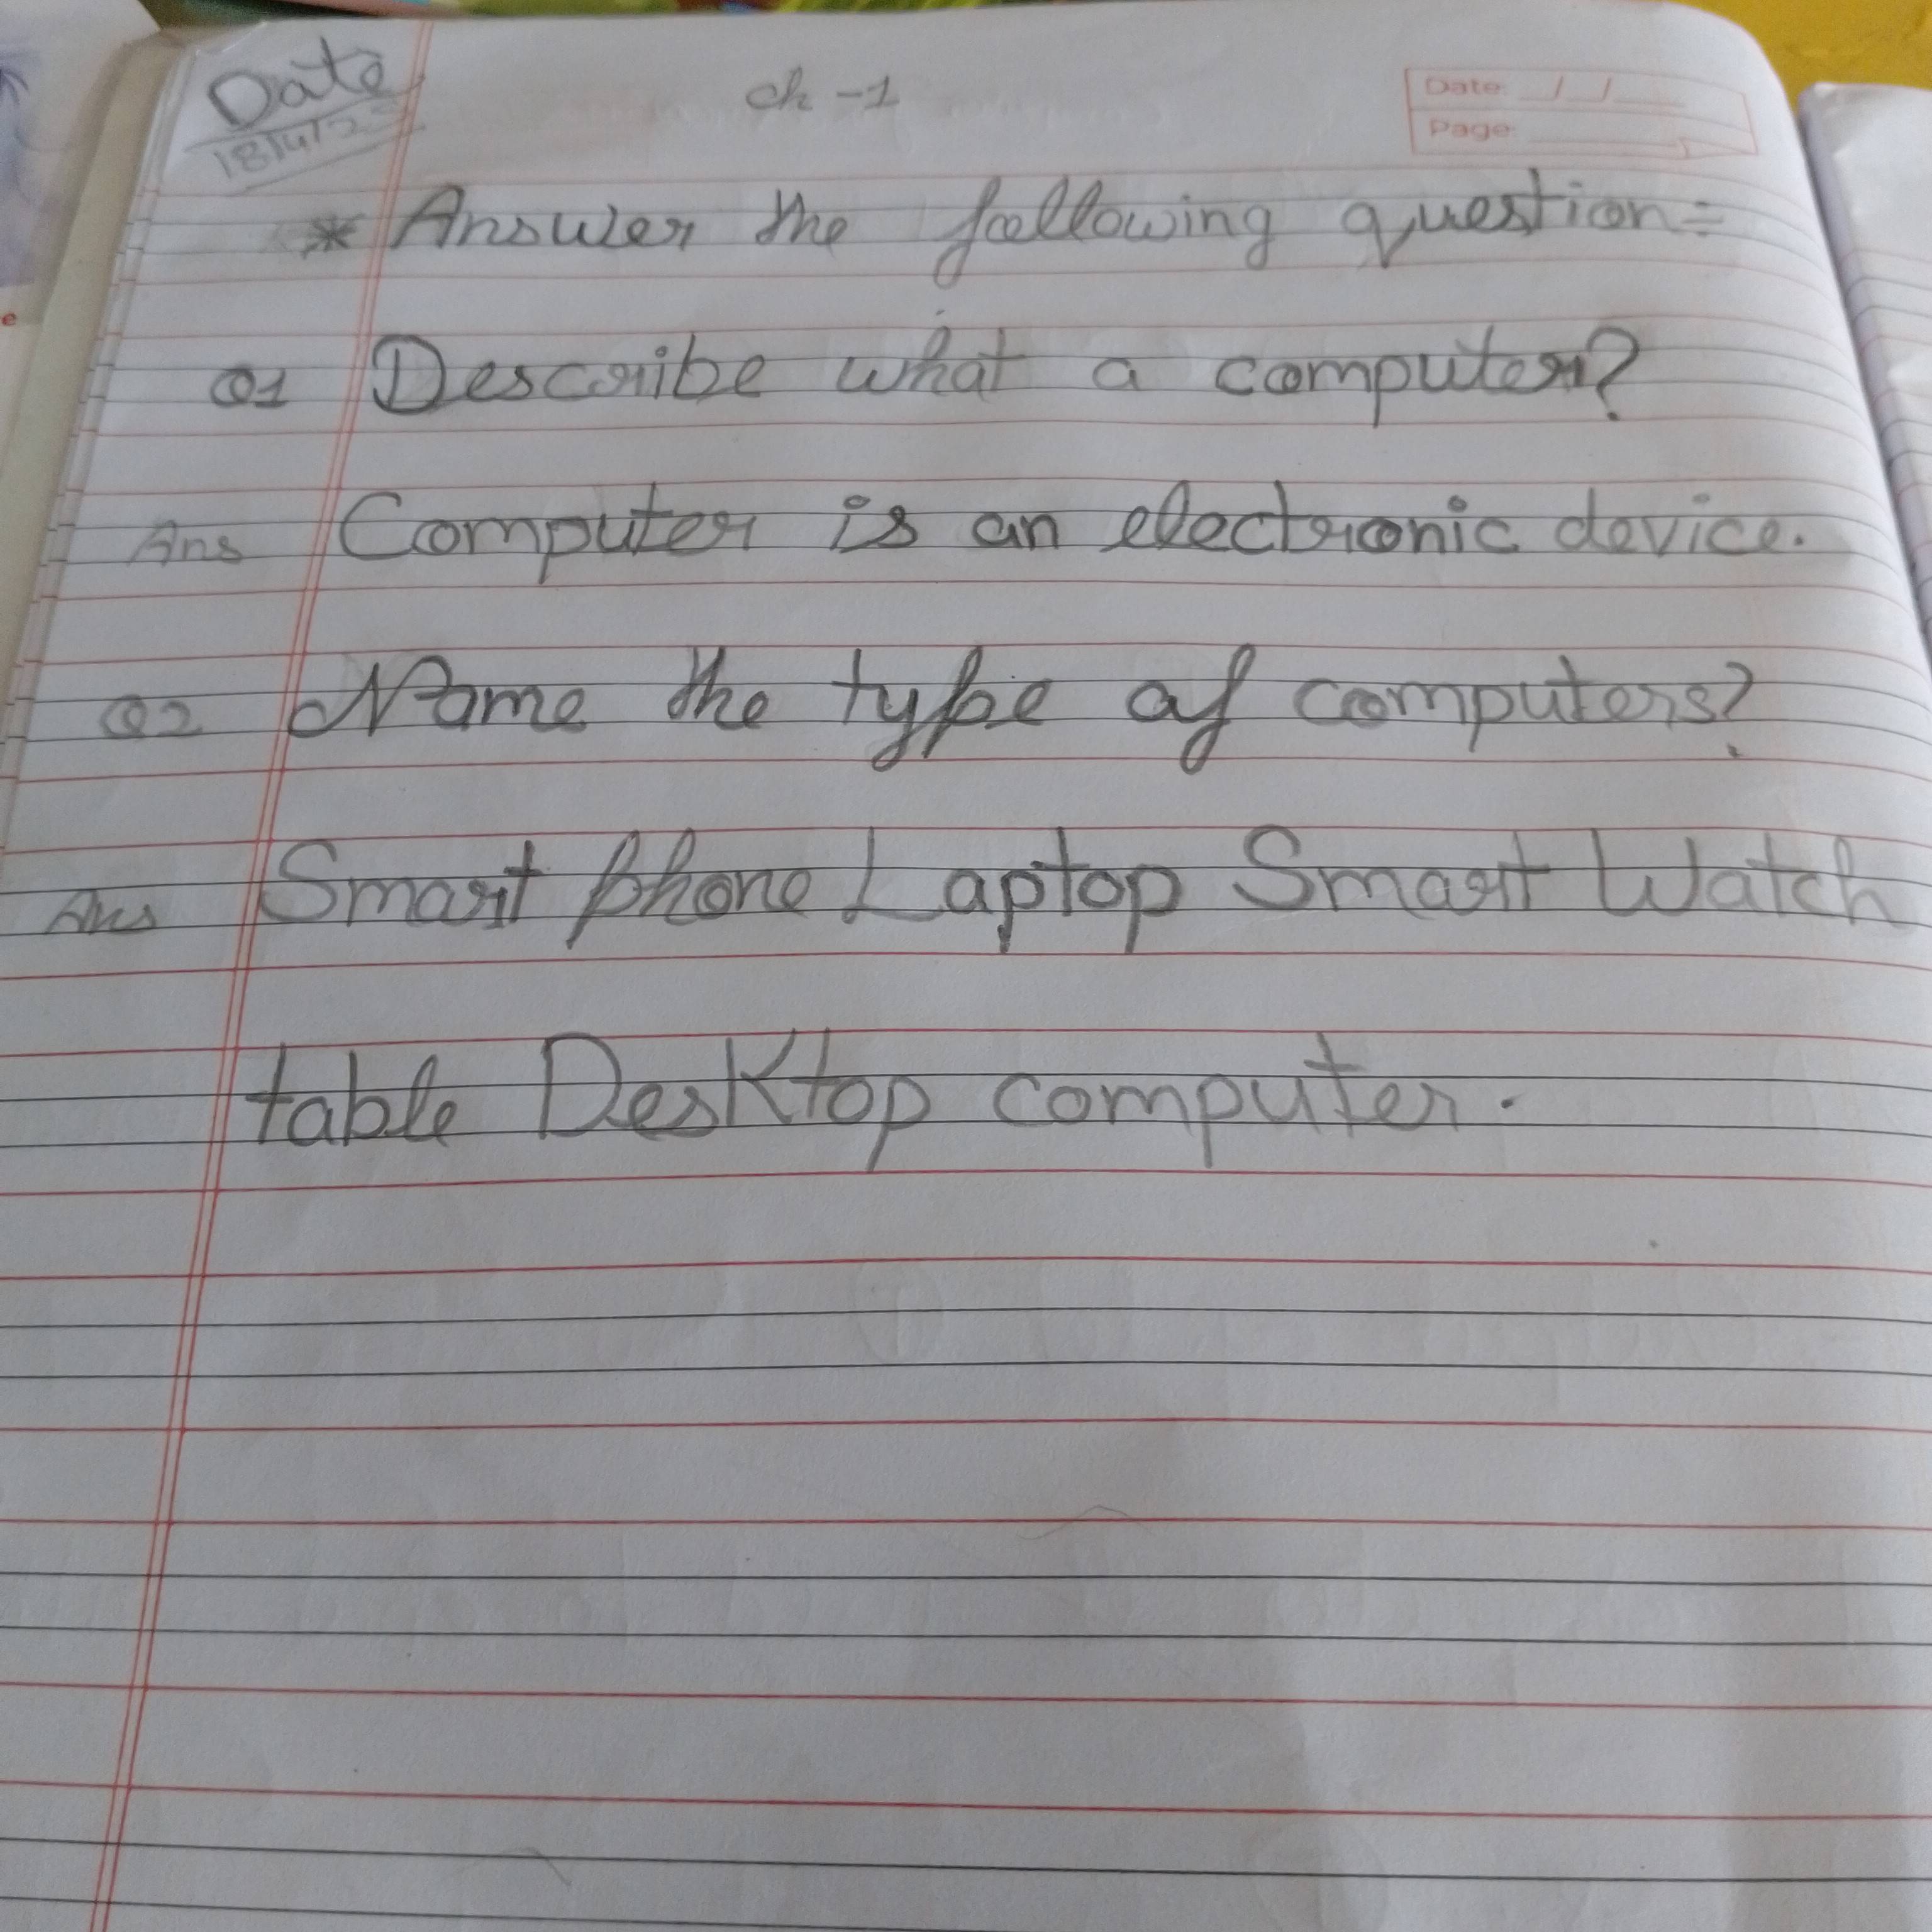 Date
ch - 1
Date: / /
Page:
* Answer the following question =
Q1 Describe what a computer?
Ans Computer is an electronic device.
Q2 Name the type of computers?
Ans Smart phone Laptop Smart Watch
table Desktop computer.